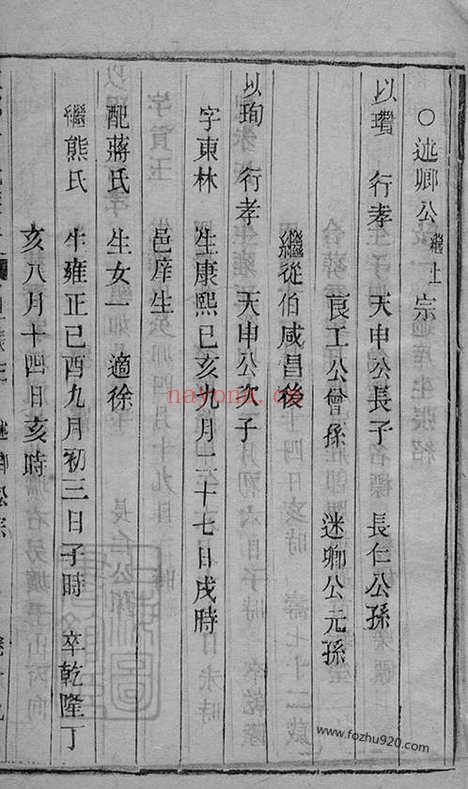 ○述卿公繼上宗
以瓚 行孝 天申公長子 長仁公孫
良工公曾孫 述卿公元孫
繼從伯咸昌後
以珣 行孝 天申公次子
字東林 生康熙巳亥九月二十七日戌時
邑庠生
配蔣氏 生女一 適徐
繼熊氏 生雍正己酉九月初三日子時 卒乾隆丁
亥八月十四日亥時
nayona.cn
www.fozhu920.com